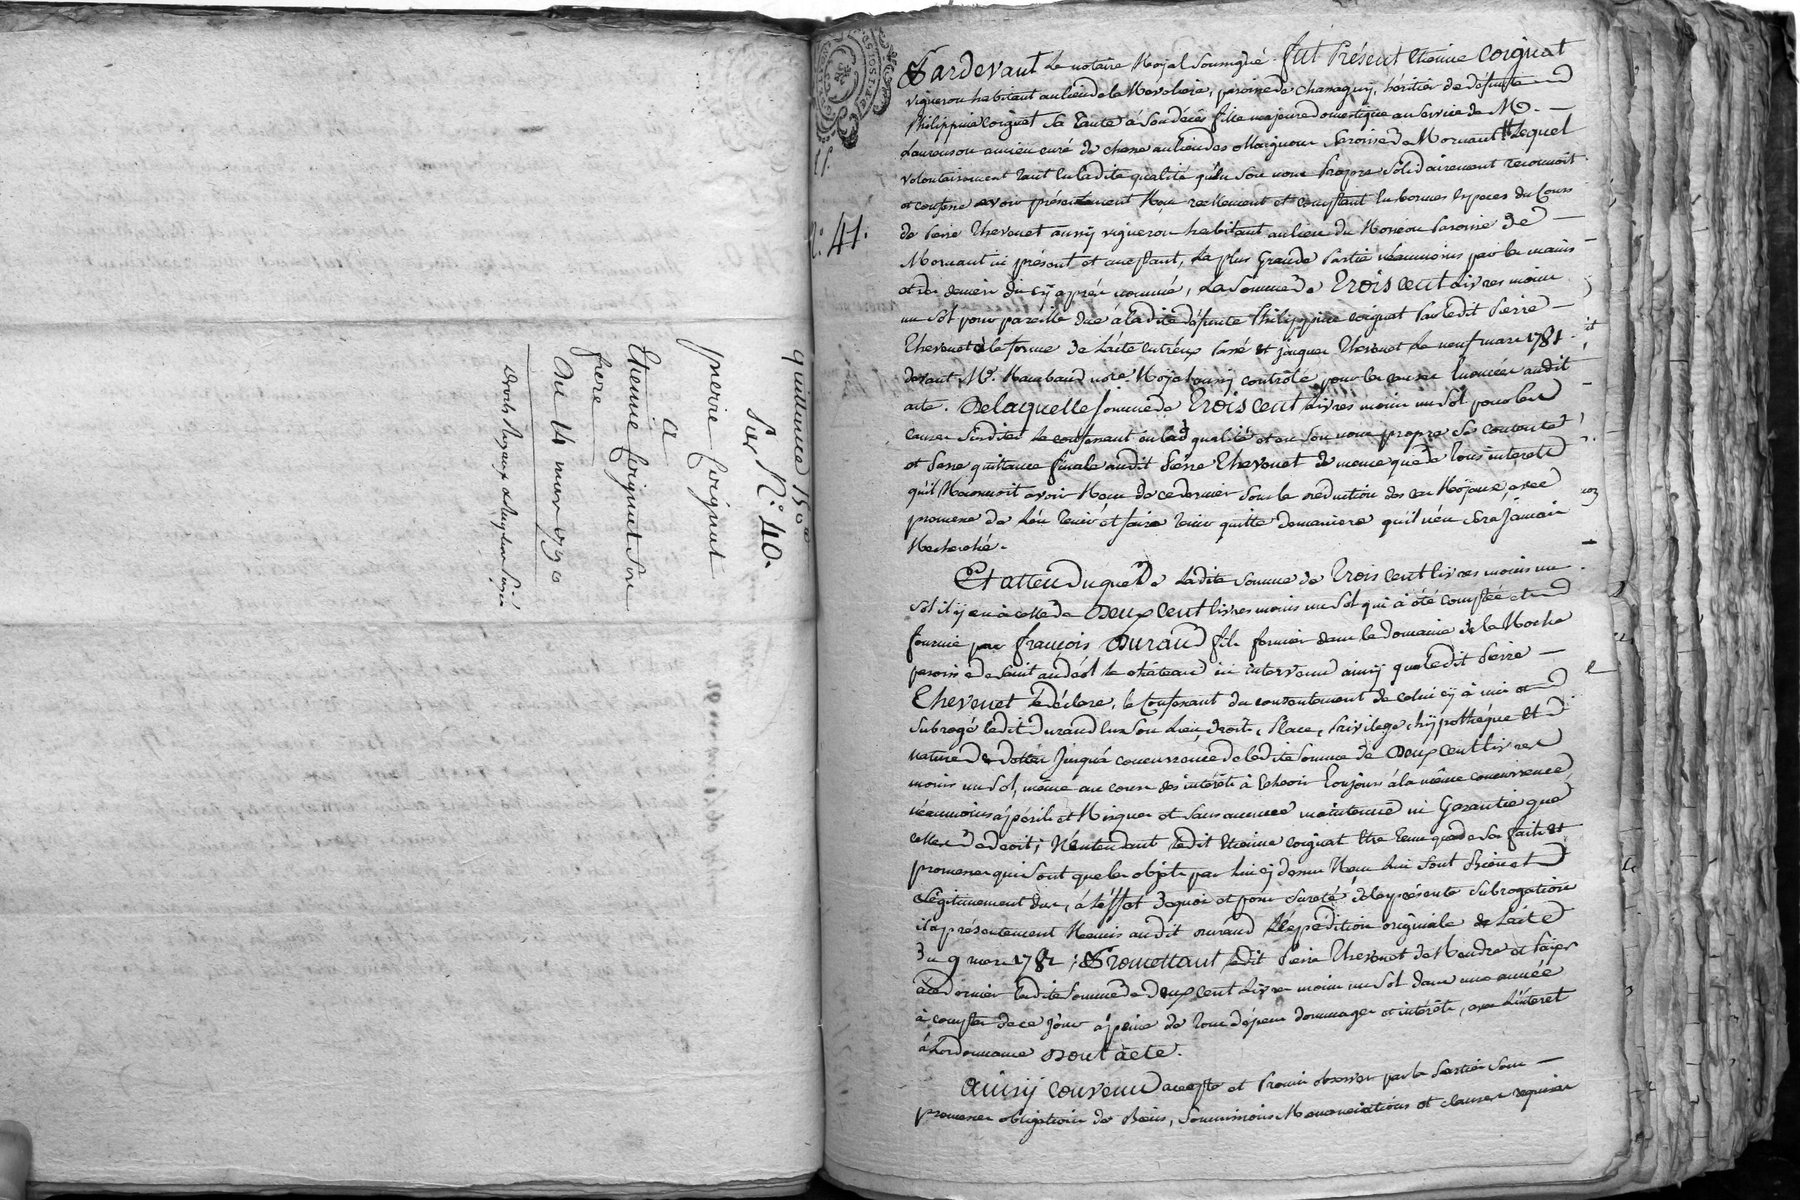 quittance 150
Sur N.° 40.
pierre Coignat
a
Etienne Coignat son
frere
Du 14 mars 1790
N.° 41.
Pardevant le notaire Royal soussigné. fut Présent Etienne Coignat
vigneron habitant au lieu de la paroisse de Chassagny, héritier de défunte
Philippine Coignat sa tante à son décès fille majeure domestique au service de M.
Laurenson ancien curé de au lieu des paroisse de Mornant Lequel
volontairement tant en ladite qualité qu'en son nom Propre solidairement reconnoit
et confesse avoir présentement Reçu reellement et comptant en bonnes especes du Cours
de Pierre Thevenet aussy vigneron habitant au lieu du Paroisse de
Mornant ici présent et acceptant, la plus Grande Partie néanmoins par les mains
et des deniers du cy après nommé, la somme de Trois cent livres moins
un sol pour pareille due à ladite défunte Philippine Coignat Par ledit Pierre
Thevenet à la forme de l'acte entr'eux Passé et jacques Thevenet le neuf mars 1781
devant M.e not.e Royal aussy, contrôlé, pour les causes Enoncées audit
acte. De laquelle somme de Trois cent livres moins un sol pour les
causes susdites le confessant en lad. qualité et en son nom propre se contente
et Passe quittance finale audit Pierre Thevenet de meme que de Tous interets
qu'il Reconnoit avoir Reçu de ce dernier sous la réduction des Royaux, avec
promesse de l'en tenir et faire tenir quitte de maniere qu'il n'en sera Jamais
Recherché.
Et attendu que de ladite somme de Trois cent livres moins un
sol il y en a celle de Deux cent livres moins un sol qui a été comptée et
fournie par françois Durand fils fermier dans le domaine de la Roche
paroisse de saint andéol le château ici intervenu ainsy que ledit Pierre
Thevenet le déclare, le Confessant du consentement de celui cy à mis et
subrogé ledit Durand en son Lieu, droit, Place, Privilege, hypothéque Et
nature de dettes Jusqu'à concurrence de ladite somme de Deux cent livres
moins un sol, même au cours des intérêts à Echeoir Toujours à la même concurrence
néanmoins à périls et Risques et sans aucune maintenue ni Garantie que
celles de droit; N'entendant ledit Etienne Coignat Etre tenu que de ses faits et
promesses qui sont que les objets par lui cy dessus Reçu lui sont Bien et
Légitimement dus, à l'effet de quoi et pour sureté de la présente subrogation
il a présentement Remis audit Durand l'Expédition originale de l'acte
du 9 mars 1781; Promettant ledit Pierre Thevenet de Rendre et Paÿer
à ce dernier ladite somme de deux cent Livres moins un sol dans une année
à compter de ce Jour à peine de tous dépens dommages et intérêts, avec l'interet
à L'ordonnance Dont acte.
Ainsy convenu accepté et Promis observer par les Parties sous
promesses obligations de Biens, soumissions Renonciations et clauses requises